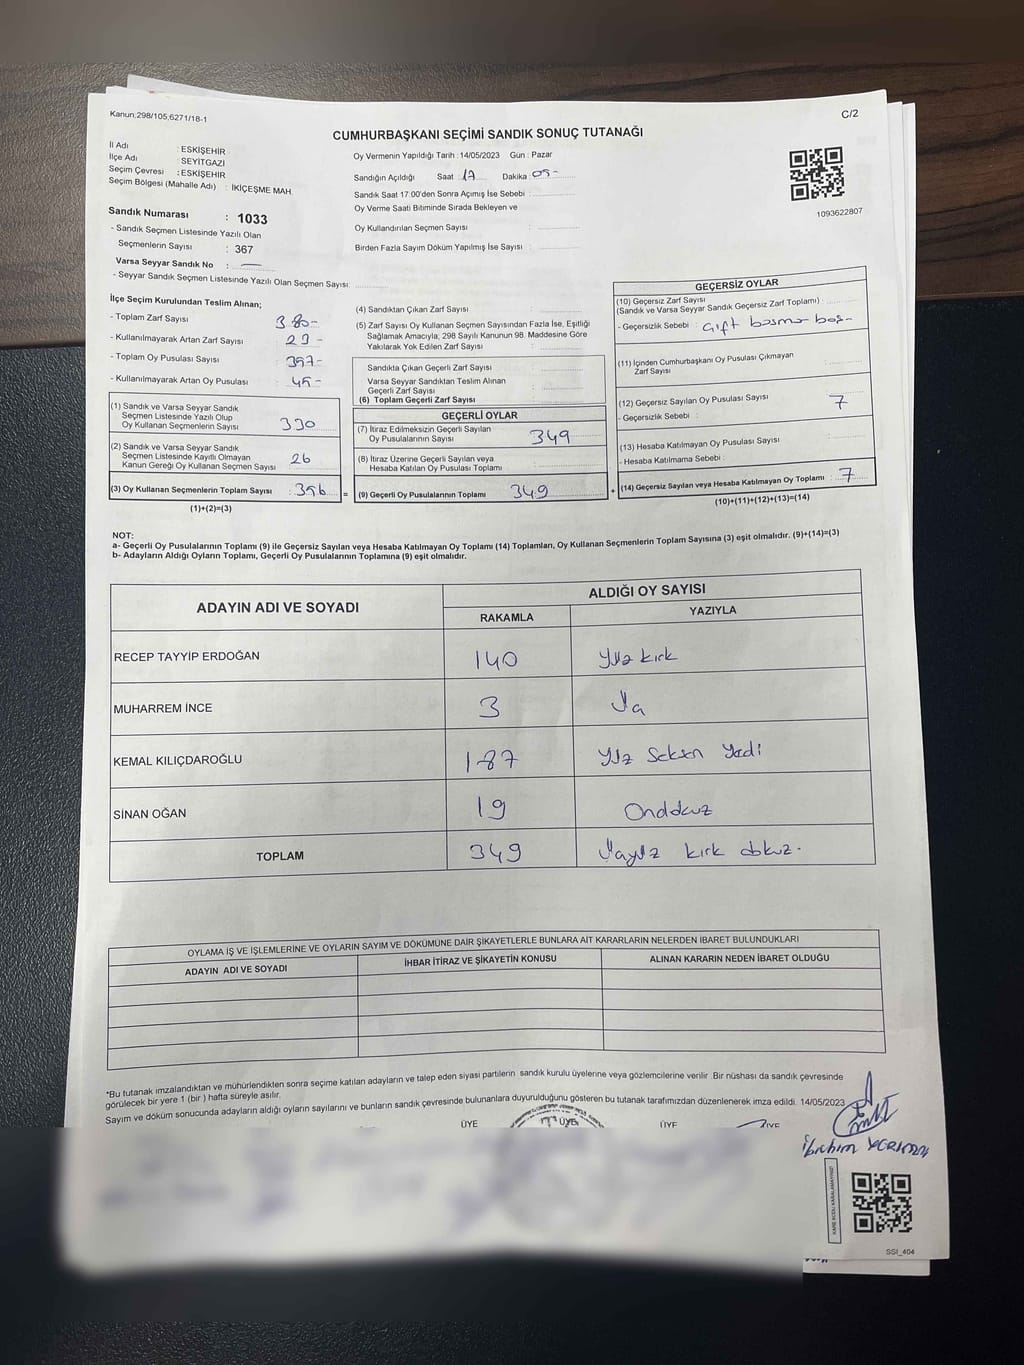 Kanun;298/105,6271/18-1
C/2
CUMHURBAŞKANI SEÇİMİ SANDIK SONUÇ TUTANAĞI
İl Adı : ESKİŞEHİR
İlçe Adı : SEYİTGAZİ
Seçim Çevresi : ESKİŞEHİR
Seçim Bölgesi (Mahalle Adı) : İKİÇEŞME MAH.
Oy Vermenin Yapıldığı Tarih :14/05/2023 Gün : Pazar
Sandığın Açıldığı Saat : 17 Dakika : 05-
Sandık Saat 17:00'den Sonra Açımış İse Sebebi :
Oy Verme Saati Bitiminde Sırada Bekleyen ve
Oy Kullandırılan Seçmen Sayısı :
Birden Fazla Sayım Döküm Yapılmış İse Sayısı :
1093622807
Sandık Numarası : 1033
- Sandık Seçmen Listesinde Yazılı Olan
Seçmenlerin Sayısı : 367
Varsa Seyyar Sandık No : —
- Seyyar Sandık Seçmen Listesinde Yazılı Olan Seçmen Sayısı:
İlçe Seçim Kurulundan Teslim Alınan;
- Toplam Zarf Sayısı : 380-
- Kullanılmayarak Artan Zarf Sayısı :
- Toplam Oy Pusulası Sayısı : 397-
- Kullanılmayarak Artan Oy Pusulası : 45-
(1) Sandık ve Varsa Seyyar Sandık
Seçmen Listesinde Yazılı Olup
Oy Kullanan Seçmenlerin Sayısı : 330
(2) Sandık ve Varsa Seyyar Sandık
Seçmen Listesinde Kayıtlı Olmayan
Kanun Gereği Oy Kullanan Seçmen Sayısı : 26
(3) Oy Kullanan Seçmenlerin Toplam Sayısı : 356 =
(1)+(2)=(3)
(4) Sandıktan Çıkan Zarf Sayısı :
(5) Zarf Sayısı Oy Kullanan Seçmen Sayısından Fazla İse, Eşitliği
Sağlamak Amacıyla; 298 Sayılı Kanunun 98. Maddesine Göre
Yakılarak Yok Edilen Zarf Sayısı :
Sandıkta Çıkan Geçerli Zarf Sayısı :
Varsa Seyyar Sandıktan Teslim Alınan
Geçerli Zarf Sayısı :
(6) Toplam Geçerli Zarf Sayısı :
GEÇERLİ OYLAR
(7) İtiraz Edilmeksizin Geçerli Sayılan
Oy Pusulalarının Sayısı : 349
(8) İtiraz Üzerine Geçerli Sayılan veya
Hesaba Katılan Oy Pusulası Toplamı :
(9) Geçerli Oy Pusulalarının Toplamı : 349 +
GEÇERSİZ OYLAR
(10) Geçersiz Zarf Sayısı
(Sandık ve Varsa Seyyar Sandık Geçersiz Zarf Toplamı) :
- Geçersizlik Sebebi :
(11) İçinden Cumhurbaşkanı Oy Pusulası Çıkmayan
Zarf Sayısı :
(12) Geçersiz Sayılan Oy Pusulası Sayısı : 7
- Geçersizlik Sebebi :
(13) Hesaba Katılmayan Oy Pusulası Sayısı :
- Hesaba Katılmama Sebebi :
(14) Geçersiz Sayılan veya Hesaba Katılmayan Oy Toplamı : 7
(10)+(11)+(12)+(13)=(14)
NOT:
a- Geçerli Oy Pusulalarının Toplamı (9) ile Geçersiz Sayılan veya Hesaba Katılmayan Oy Toplamı (14) Toplamları, Oy Kullanan Seçmenlerin Toplam Sayısına (3) eşit olmalıdır. (9)+(14)=(3)
b- Adayların Aldığı Oyların Toplamı, Geçerli Oy Pusulalarının Toplamına (9) eşit olmalıdır.
ADAYIN ADI VE SOYADI
ALDIĞI OY SAYISI
RAKAMLA YAZIYLA
RECEP TAYYİP ERDOĞAN 140 Yüz kırk
MUHARREM İNCE 3 Üç
KEMAL KILIÇDAROĞLU 187 Yüz Seksen Yedi
SİNAN OĞAN 19 Ondokuz
TOPLAM 349 Üçyüz kırk dokuz.
OYLAMA İŞ VE İŞLEMLERİNE VE OYLARIN SAYIM VE DÖKÜMÜNE DAİR ŞİKAYETLERLE BUNLARA AİT KARARLARIN NELERDEN İBARET BULUNDUKLARI
ADAYIN ADI VE SOYADI İHBAR İTİRAZ VE ŞİKAYETİN KONUSU ALINAN KARARIN NEDEN İBARET OLDUĞU
*Bu tutanak imzalandıktan ve mühürlendikten sonra seçime katılan adayların ve talep eden siyasi partilerin sandık kurulu üyelerine veya gözlemcilerine verilir. Bir nüshası da sandık çevresinde
görülecek bir yere 1 (bir ) hafta süreyle asılır.
Sayım ve döküm sonucunda adayların aldığı oyların sayılarını ve bunların sandık çevresinde bulunanlara duyurulduğunu gösteren bu tutanak tarafımızdan düzenlenerek imza edildi. 14/05/2023
ÜYE ÜYE ÜYE ÜYE
İbrahim
KARE KODU KARALAMAYINIZ!
SSI_404